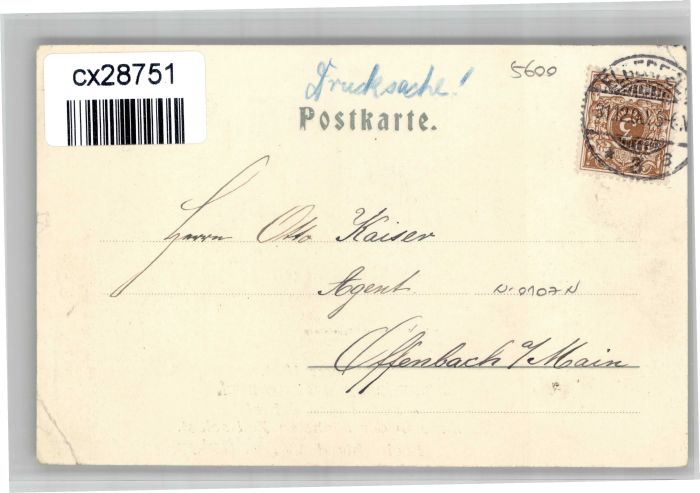 cx28751
5600
Drucksache!
Postkarte.
ELBERFELD
3
Herrn Otto Kaiser
Agent
Offenbach a/Main